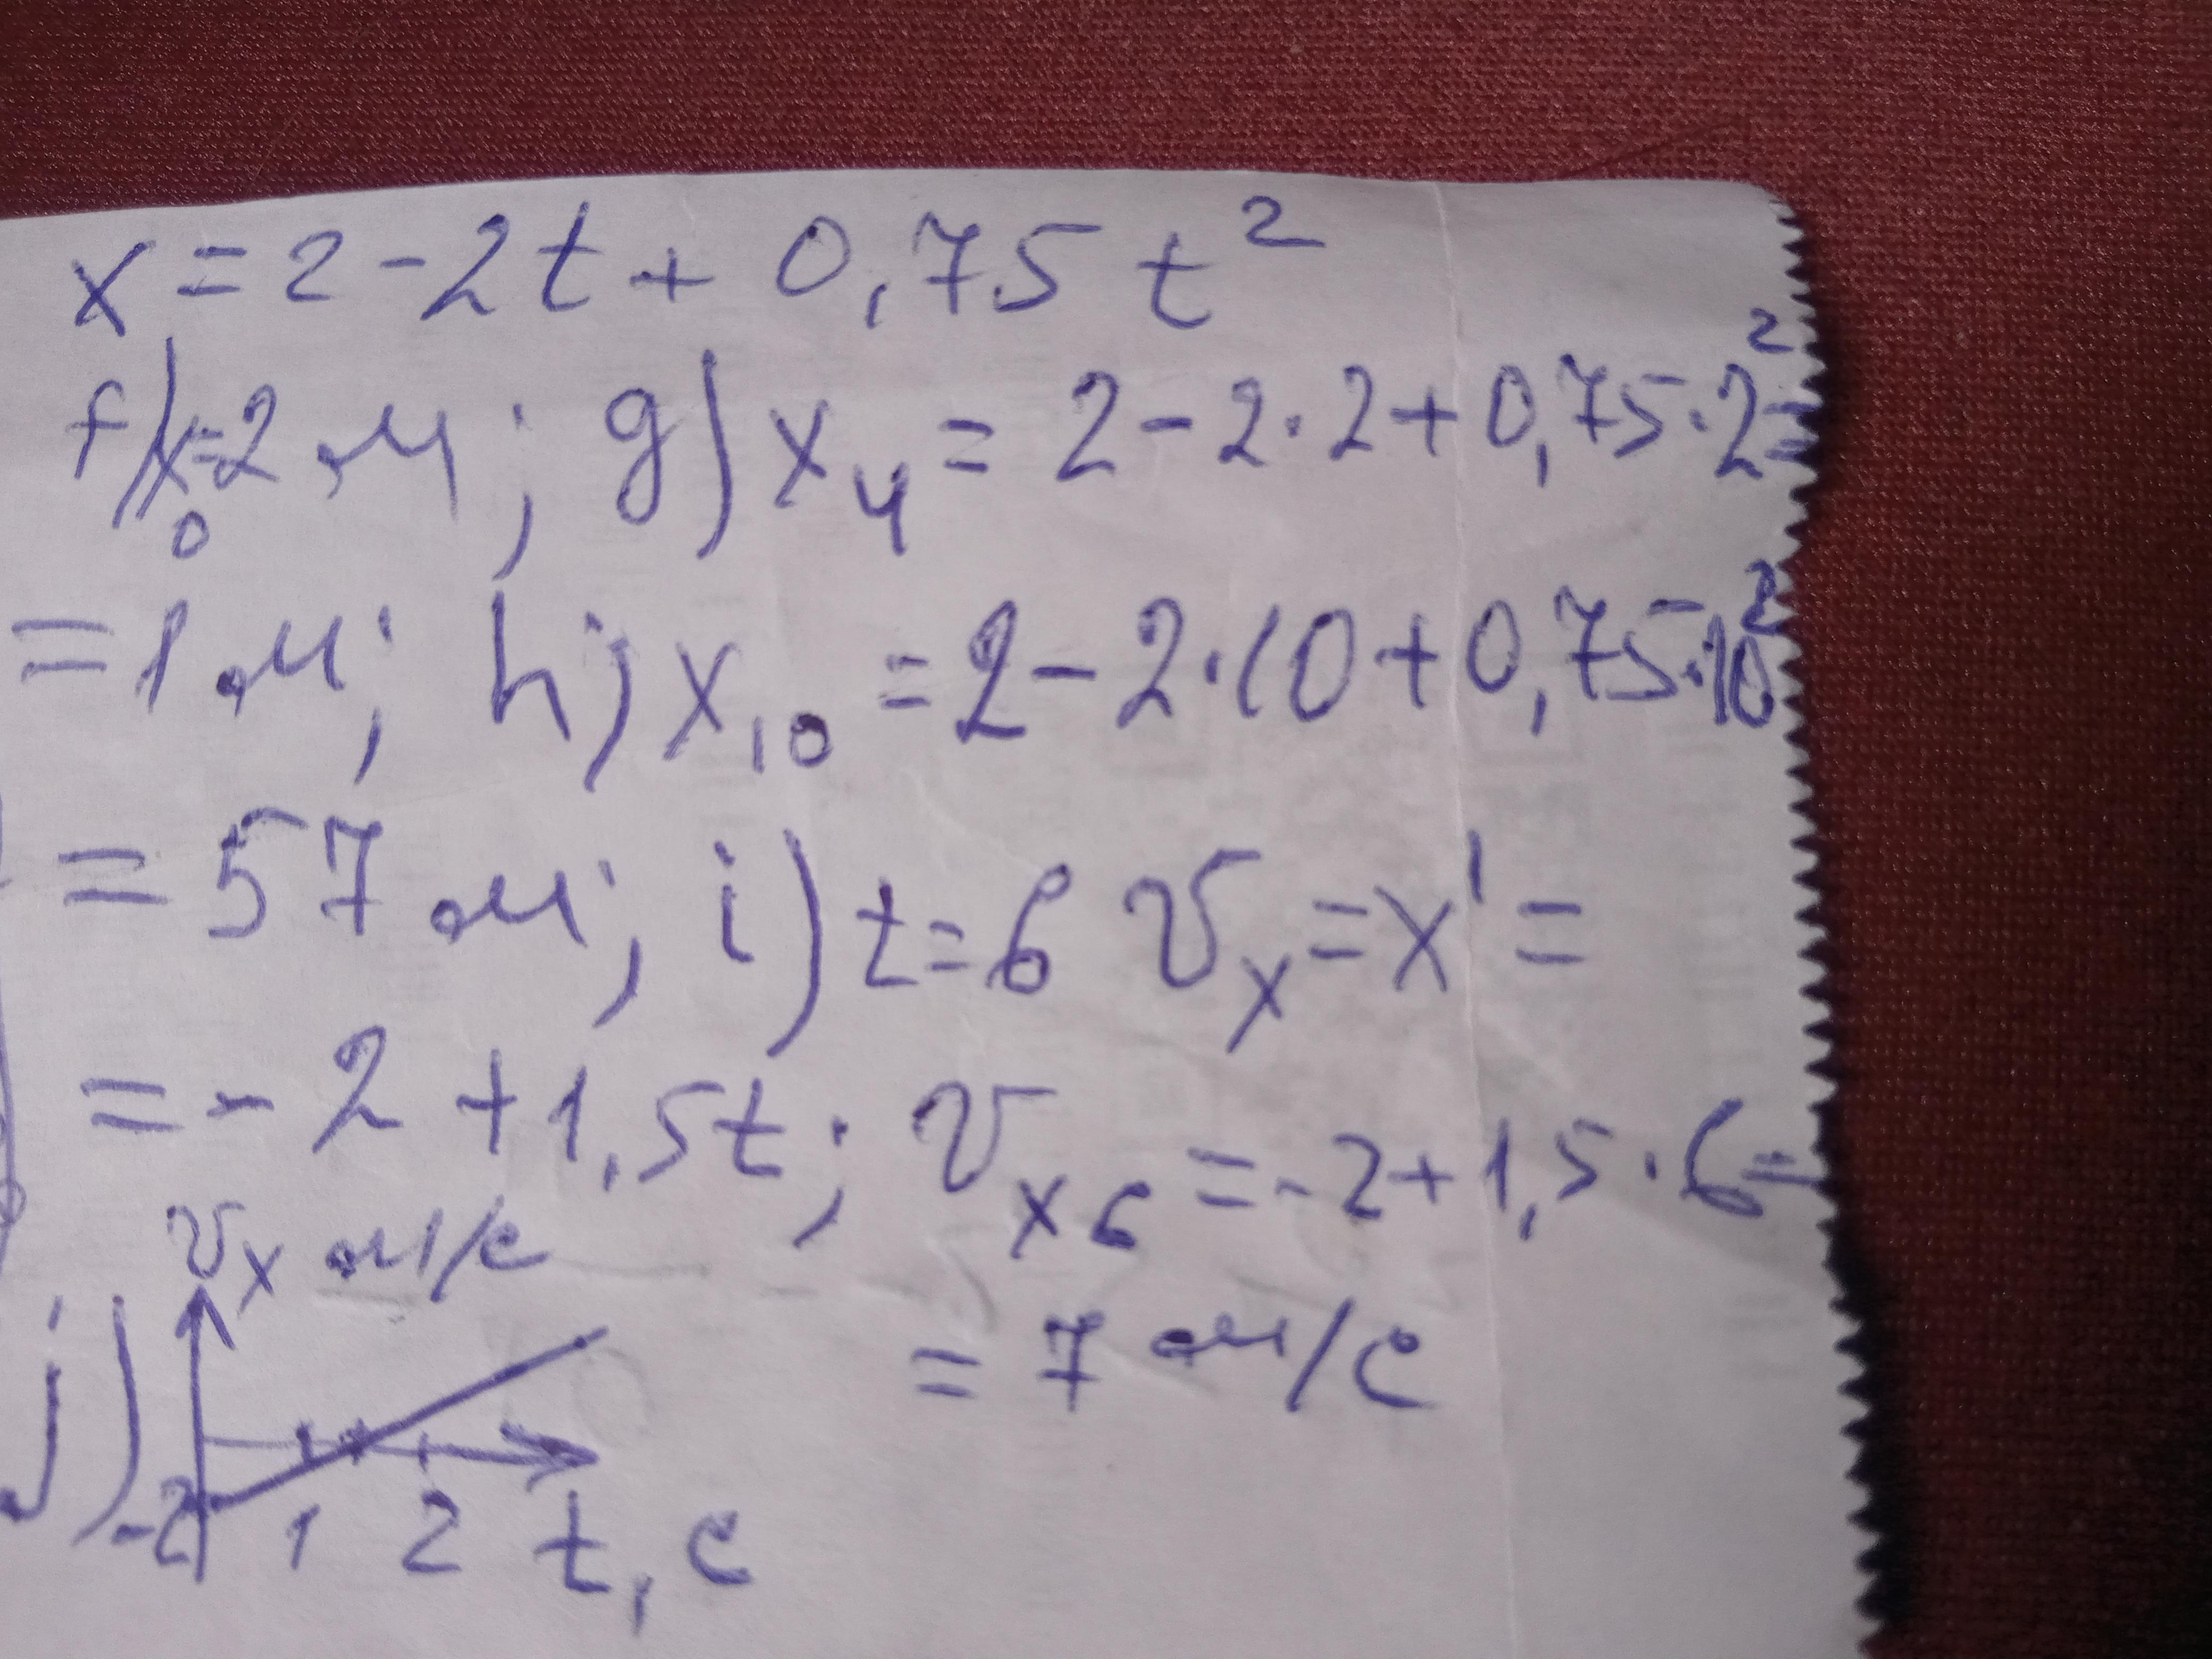 x = 2 - 2t + 0,75 t²
f) x₀=2 м; g) x₄ = 2 - 2·2 + 0,75·2² =
= 1 м; h) x₁₀ = 2 - 2·10 + 0,75·10²
= 57 м; i) t = 6 υₓ = x' =
= - 2 + 1,5t; υₓ₆ = -2 + 1,5·6 =
υₓ м/с
= 7 м/с
j) -2 1 2 t, с